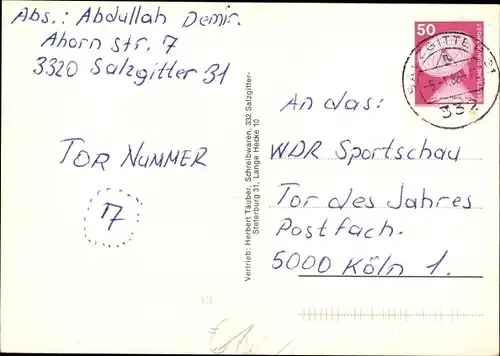 Abs.: Abdullah Demir.
Ahorn str. 7
3320 Salzgitter 31
TOR NUMMER
17
Vertrieb: Herbert Täuber, Schreibwaren, 332 Salzgitter-
Steterburg 31, Lange Hecke 10
50
DEUTSCHE BUNDESPOST
SALZGITTER
332
An das:
WDR Sportschau
Tor des Jahres
Postfach.
5000 Köln 1.